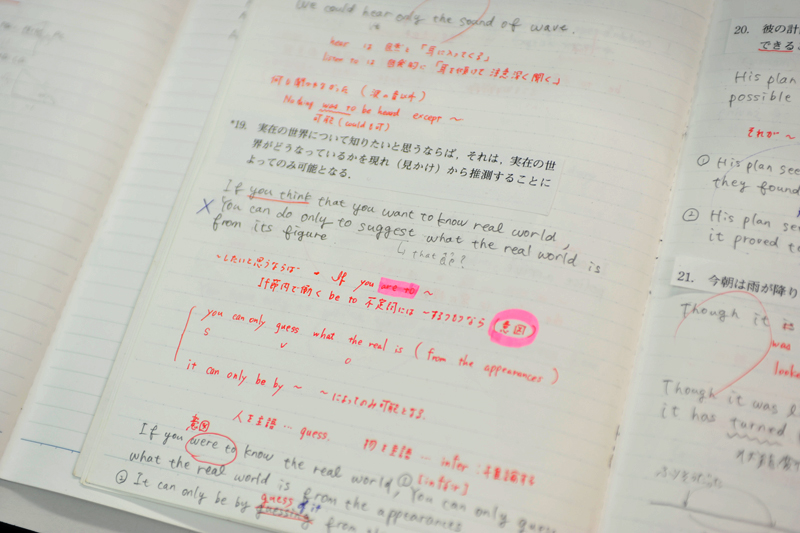 We could hear only the sound of wave.
it
hear は 自然と「耳に入ってくる」
listen to は 意識的に「耳を傾けて 注意深く聞く」
何も聞こえなかった（波の音以外）
Nothing was to be heard except ~
可能（couldも可）
*19. 実在の世界について知りたいと思うならば，それは，実在の世
界がどうなっているかを現れ（見かけ）から推測することに
よってのみ可能となる．
If you think that you want to know real world,
× You can do only to suggest what the real world is
from its figure.
that is?
~したいと思うならば → If you were to ~
if節内で働く be to 不定詞には ~するつもりなら 意図
you can only guess what the real is (from the appearances)
S V O
it can only be by ~ ~によってのみ可能となる.
人を主語 … guess. 物を主語 … infer : 推論する
意図
If you were to know the real world, ① You can only guess
[infər]
what the real world is from the appearances
② It can only be by guess of it
guessing from the
20. 彼の計
できる
His plan
possible
それが ~
① His plan see
they found
② His plan see
it proved to
21. 今朝は雨が降り
Though it is
was
looke
Though it was l
it has turned